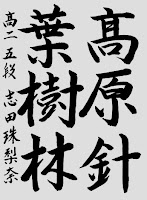 髙原針
葉樹林
高二 五段 志田珠梨奈